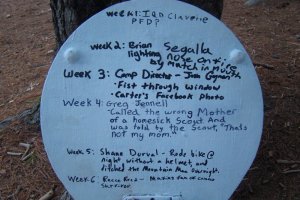 week 1: Ian Claveire
PFD?
week 2: Brian Segalla
lighting nose on fire
by match in mouth
Week 3: Camp Director - Jim Gagnon
• Fist through window
• Carter's Facebook Photo
Week 4: Greg Jennell
-Called the wrong Mother
of a homesick Scout and
was told by the Scout, "Thats
not my mom."
Week 5: Shane Dorval - Rode bike @
night without a helmet, and
ditched the Mountain Man Overnight.
Week 6: Reece